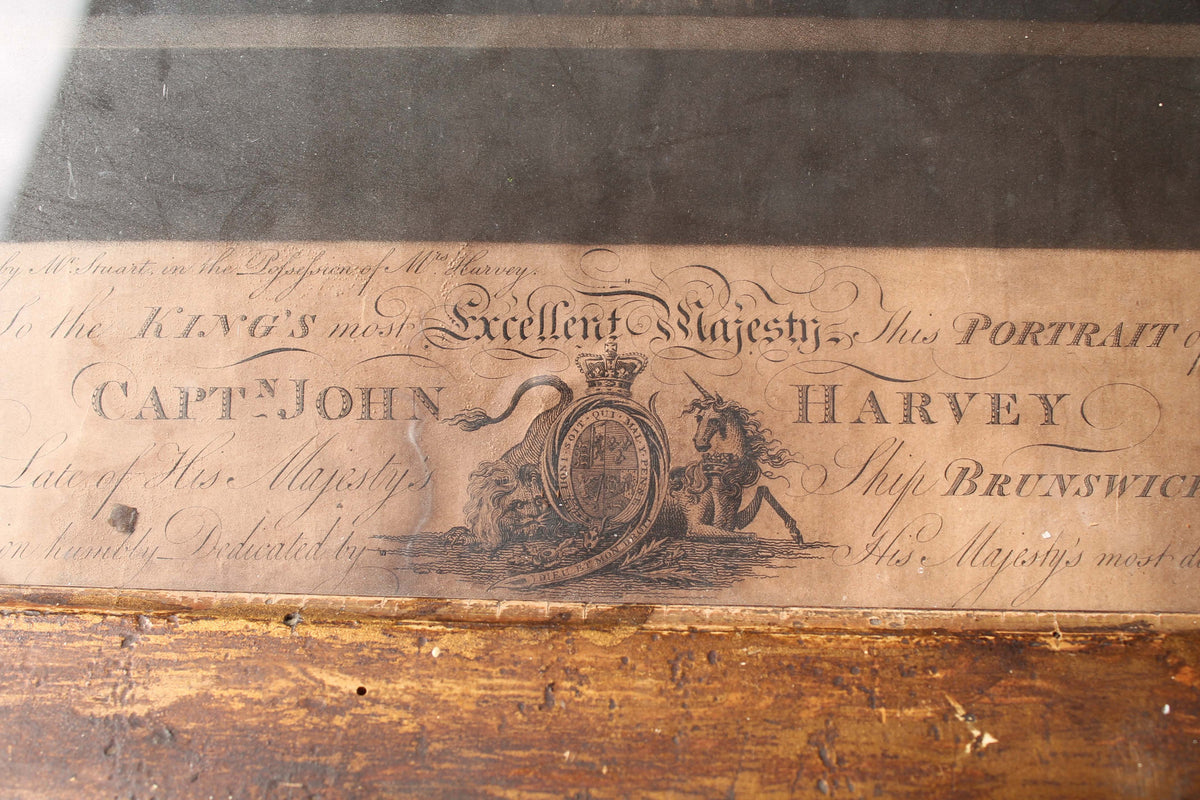 by Mr. Stuart, in the Possession of Mrs Harvey.
To the KING'S most Excellent Majesty, This PORTRAIT of
CAPTN JOHN HARVEY
Late of His Majesty's Ship BRUNSWICK
humbly Dedicated by His Majesty's most
HONI·SOIT·QUI·MAL·Y·PENSE
DIEU ET MON DROIT